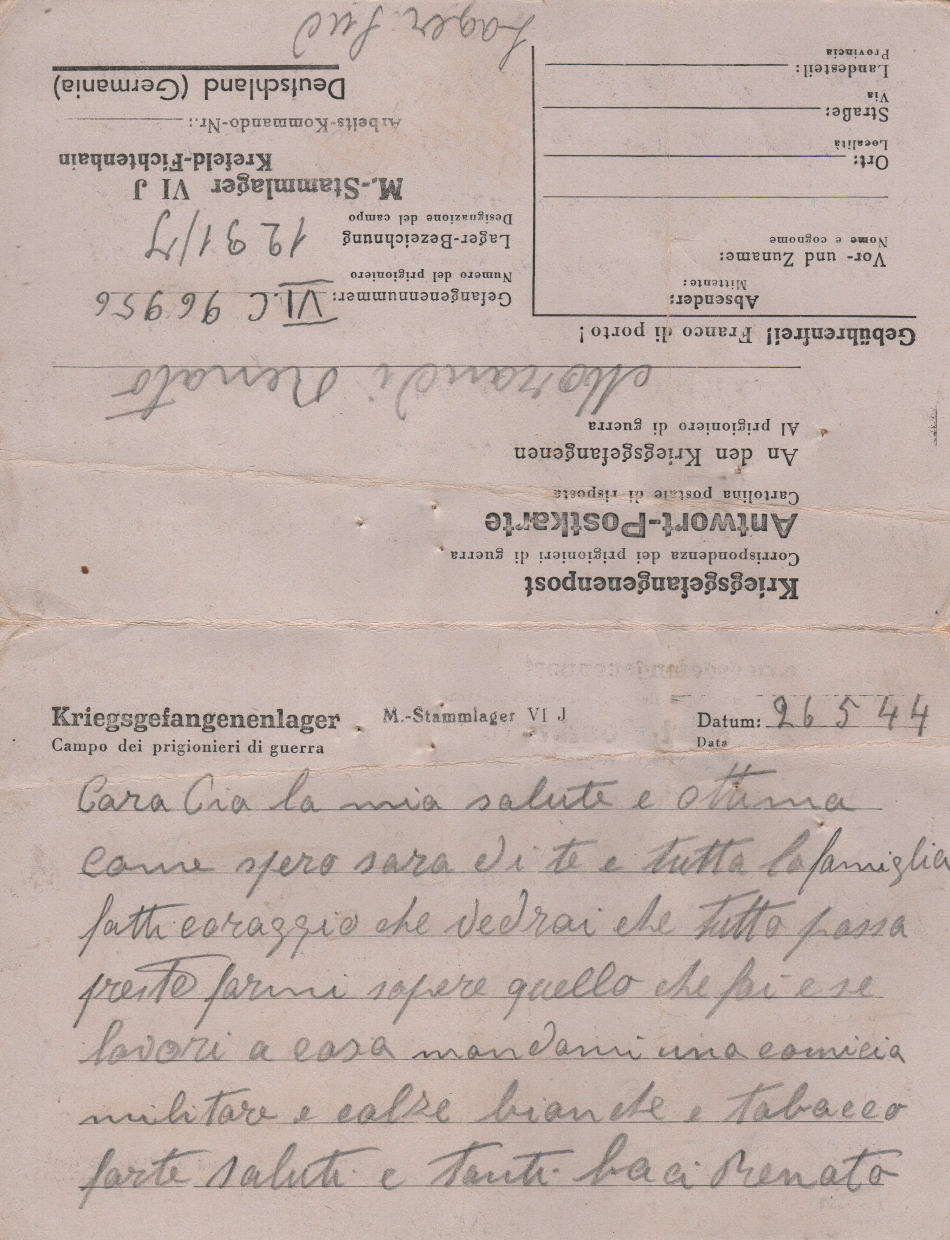 Kriegsgefangenenpost
Corrispondenza dei prigionieri di guerra
Antwort-Postkarte
Cartolina postale di risposta
An den Kriegsgefangenen
Al prigioniero di guerra
Morandi Renato
Gebührenfrei! Franco di porto!
Absender:
Mittente:
Vor- und Zuname:
Nome e cognome
Ort:
Località
Straße:
Via
Landesteil:
Provincia
Gefangenennummer: VI.C 96956
Numero del prigioniero
Lager-Bezeichnung 1291/J
Designazione del campo
M.-Stammlager VI J
Krefeld-Fichtenhain
Arbeits-Kommando-Nr.:
Deutschland (Germania)
Lager Sud
Kriegsgefangenenlager M.-Stammlager VI J Datum: 26 5 44
Campo dei prigionieri di guerra Data
Cara Cia la mia salute e ottima
come spero sara di te e tutta la famiglia
fatti coraggio che vedrai che tutto passa
presto farmi sapere quello che fai e se
lavori a casa mandami una camicia
militare e calze bianche e tabacco
forte saluti e tanti baci Renato